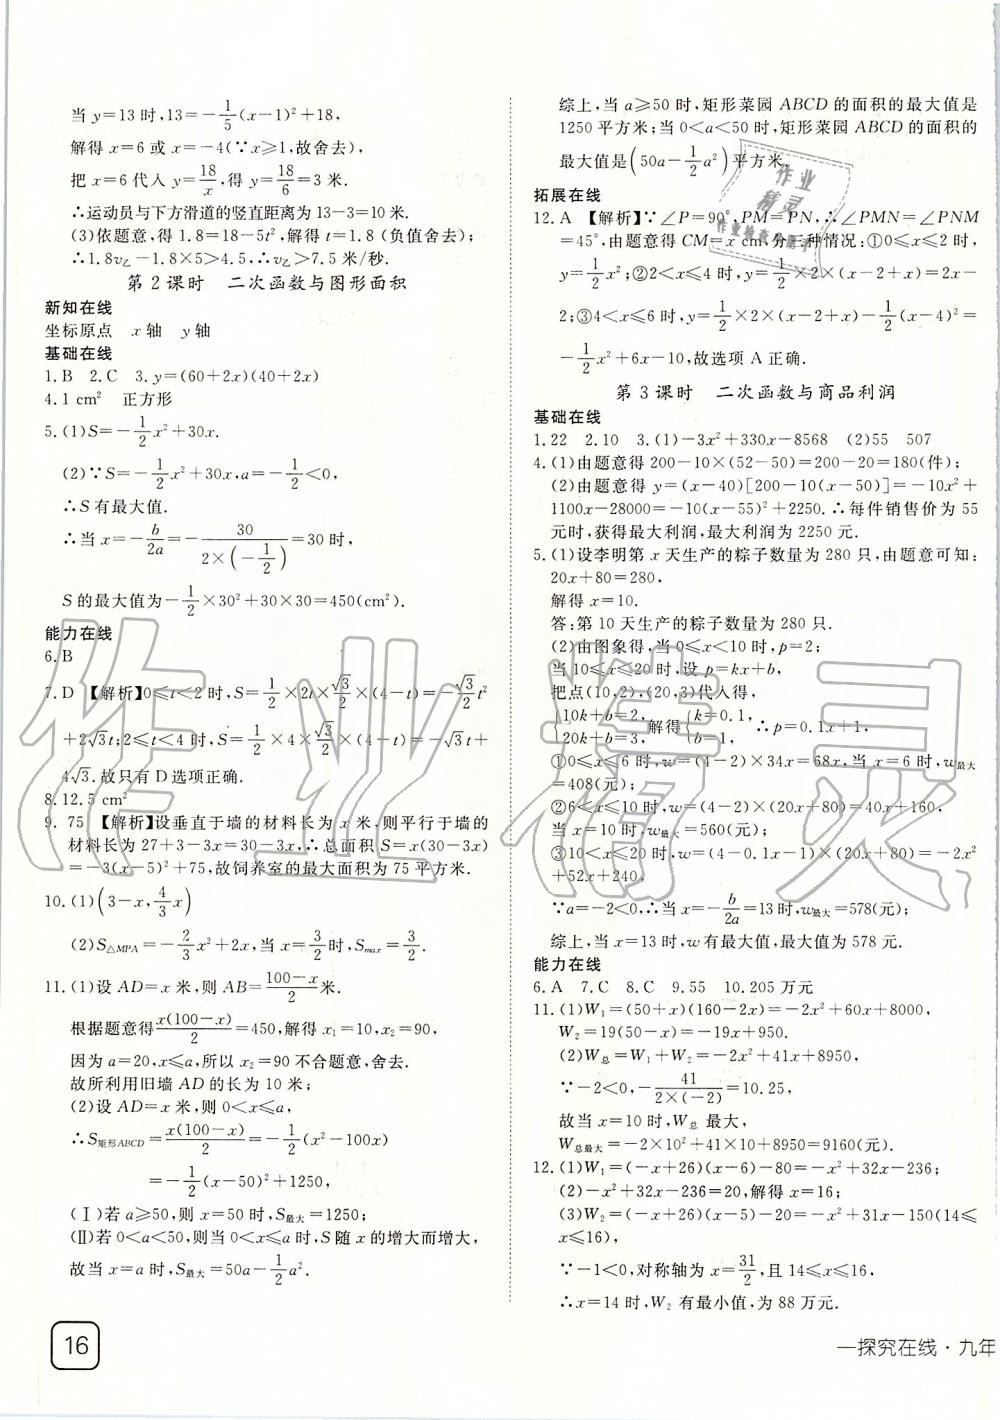 当 y=13 时,13=-1/5(x-1)²+18,
解得 x=6 或 x=-4(∵x⩾1,故舍去),
把 x=6 代入 y=18/x,得 y=18/6=3 米.
∴运动员与下方滑道的竖直距离为 13-3=10 米.
(3)依题意,得 1.8=18-5t²,解得 t=1.8 (负值舍去)
∴1.8v乙-1.8×5>4.5,∴v乙>7.5 米/秒.
第 2 课时 二次函数与图形面积
新知在线
坐标原点 x 轴 y 轴
基础在线
1.B 2.C 3.y=(60+2x)(40+2x)
4.1 cm² 正方形
5.(1)S=-1/2x²+30x.
(2)∵S=-1/2x²+30x,a=-1/2<0,
∴S 有最大值.
∴当 x=-b/2a=-30/(2×(-1/2))=30 时,
S 的最大值为-1/2×30²+30×30=450(cm²).
能力在线
6.B
7.D 【解析】0⩽t<2 时,S=1/2×2t×√3/2×(4-t)=-√3/2t²
+2√3t;2⩽t<4 时,S=1/2×4×√3/2×(4-t)=-√3t+
4√3.故只有 D 选项正确.
8.12.5 cm²
9.75 【解析】设垂直于墙的材料长为 x 米,则平行于墙的
材料长为 27+3-3x=30-3x,∴总面积 S=x(30-3x)
=-3(x-5)²+75,故饲养室的最大面积为 75 平方米.
10.(1)(3-x,4/3x)
(2)S△MPA=-2/3x²+2x,当 x=3/2时,Smax=3/2.
11.(1)设 AD=x 米,则 AB=(100-x)/2米.
根据题意得x(100-x)/2=450,解得 x₁=10,x₂=90,
因为 a=20,x⩽a,所以 x₂=90 不合题意,舍去.
故所利用旧墙 AD 的长为 10 米;
(2)设 AD=x 米,则 0<x⩽a,
∴S矩形ABCD=x(100-x)/2=-1/2(x²-100x)
=-1/2(x-50)²+1250,
(Ⅰ)若 a⩾50,则 x=50 时,S最大=1250;
(Ⅱ)若 0<a<50,则当 0<x⩽a 时,S 随 x 的增大而增大,
故当 x=a 时,S最大=50a-1/2a².
16
综上,当 a⩾50 时,矩形菜园 ABCD 的面积的最大值是
1250 平方米;当 0<a<50 时,矩形菜园 ABCD 的面积的
最大值是(50a-1/2a²)平方米.
拓展在线
12.A 【解析】∵∠P=90°,PM=PN,∴∠PMN=∠PNM
=45°,由题意得 CM=x cm,分三种情况:①0⩽x⩽2 时,
y=1/2x²;②2<x⩽4 时,y=1/2×2×(x-2+x)=2x-
2;③4<x⩽6 时,y=1/2×2×(x-2+x)-1/2(x-4)²=
-1/2x²+6x-10,故选项 A 正确.
第 3 课时 二次函数与商品利润
基础在线
1.22 2.10 3.(1)-3x²+330x-8568 (2)55 507
4.(1)由题意得 200-10×(52-50)=200-20=180(件);
(2)由题意得 y=(x-40)[200-10(x-50)]=-10x²+
1100x-28000=-10(x-55)²+2250.∴每件销售价为 55
元时,获得最大利润,最大利润为 2250 元.
5.(1)设李明第 x 天生产的粽子数量为 280 只,由题意可知:
20x+80=280,
解得 x=10.
答:第 10 天生产的粽子数量为 280 只.
(2)由图象得,当 0⩽x<10 时,p=2;
当 10⩽x⩽20 时,设 p=kx+b,
把点(10,2),(20,3)代入得,
{10k+b=2, 20k+b=3, 解得{k=0.1, b=1, ∴p=0.1x+1,
①0⩽x⩽6 时,w=(4-2)×34x=68x,当 x=6 时,w最大
=408(元);
②6<x⩽10 时,w=(4-2)×(20x+80)=40x+160,
当 x=10 时,w最大=560(元);
③10<x⩽20 时,w=(4-0.1x-1)×(20x+80)=-2x²
+52x+240,
∵a=-2<0,∴当 x=-b/2a=13 时,w最大=578(元);
综上,当 x=13 时,w 有最大值,最大值为 578 元.
能力在线
6.A 7.C 8.C 9.55 10.205 万元
11.(1)W₁=(50+x)(160-2x)=-2x²+60x+8000,
W₂=19(50-x)=-19x+950.
(2)W总=W₁+W₂=-2x²+41x+8950,
∵-2<0,-41/(2×(-2))=10.25,
故当 x=10 时,W总 最大,
W总最大=-2×10²+41×10+8950=9160(元).
12.(1)W₁=(-x+26)(x-6)-80=-x²+32x-236;
(2)-x²+32x-236=20,解得 x=16;
(3)W₂=(-x+26)(x-5)-20=-x²+31x-150(14⩽
x⩽16),
∵-1<0,对称轴为 x=31/2,且 14⩽x⩽16,
∴x=14 时,W₂ 有最小值,为 88 万元.
—探究在线·九年
作业
精灵
作业检查小助手
作业精灵